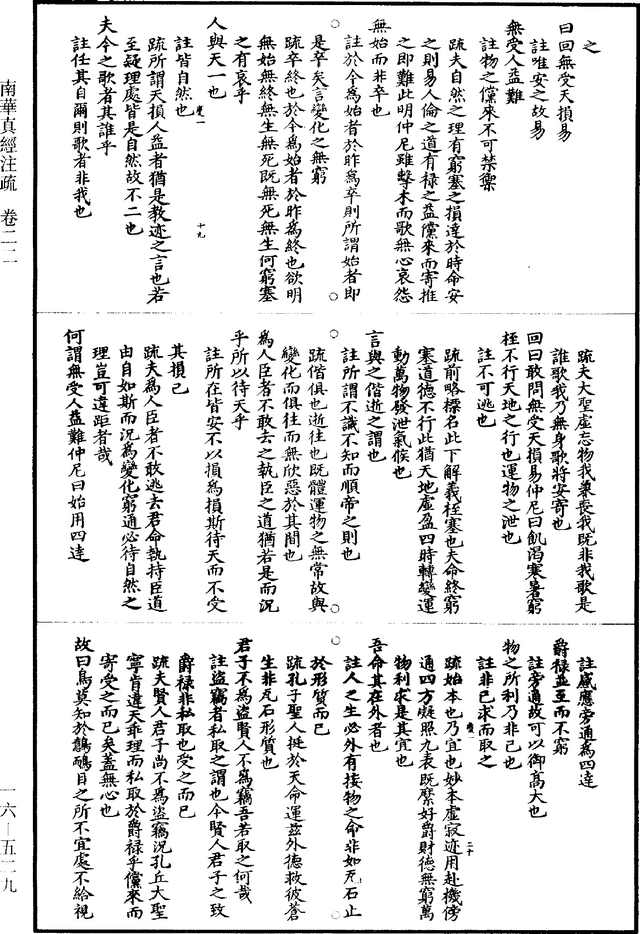 之
曰回無受天損易
註唯安之故易
無受人益難
註物之儻來不可禁禦
疏夫自然之理有窮塞之損達於時命安
之則易人倫之道有祿之益儻來而寄推
之即難此明仲尼雖擊木而歌無心哀怨
無始而非卒也
註於今為始者於昨為卒則所謂始者即
是卒矣言變化之無窮
疏卒終也於今為始者於昨為終也欲明
無始無終無生無死既無死無生何窮塞
之有哀乎
人與天一也
註皆自然也
疏所謂天損人益者猶是教迹之言也若
至凝理處皆是自然故不二也
夫今之歌者其誰乎
註任其自爾則歌者非我也
疏夫大聖虛忘物我兼喪我既非我歌是
誰歌我乃無身歌將安寄也
回曰敢問無受天損易仲尼曰飢渴寒暑窮
桎不行天地之行也運物之泄也
註不可逃也
疏前略標名此下解義桎塞也夫命終窮
塞道德不行此猶天地虛盈四時轉變運
動萬物發泄氣候也
言與之偕逝之謂也
註所謂不識不知而順帝之則也
疏偕俱也逝往也既體運物之無常故與
變化而俱往而無欣惡於其間也
為人臣者不敢去之執臣之道猶若是而況
乎所以待天乎
註所在皆安不以損為損斯待天而不受
其損已
疏夫為人臣者不敢逃去君命執持臣道
由自如斯而況為變化窮通必待自然之
理豈可違距者哉
何謂無受人益難仲尼曰始用四達
註感應旁通為四達
爵祿並至而不窮
註旁通故可以御高大也
物之所利乃非己也
註非己求而取之
疏始本也乃宜也妙本虛寂迹用赴機傍
通四方凝照九表既縻好爵財德無窮萬
物利求是其宜也
吾命其在外者也
註人之生必外有接物之命非如瓦石止
於形質而已
疏孔子聖人挺於天命運茲外德救彼蒼
生非瓦石形質也
君子不為盜賢人不為竊吾若取之何哉
註盜竊者私取之謂也今賢人君子之致
爵祿非私取也受之而已
疏夫賢人君子尚不為盜竊況孔丘大聖
寧肯違天乖理而私取於爵祿乎儻來而
寄受之而已矣蓋無心也
故曰鳥莫知於鷾鴯目之所不宜處不給視
南華真經注疏 卷二二
十九
二十
一六—五二九